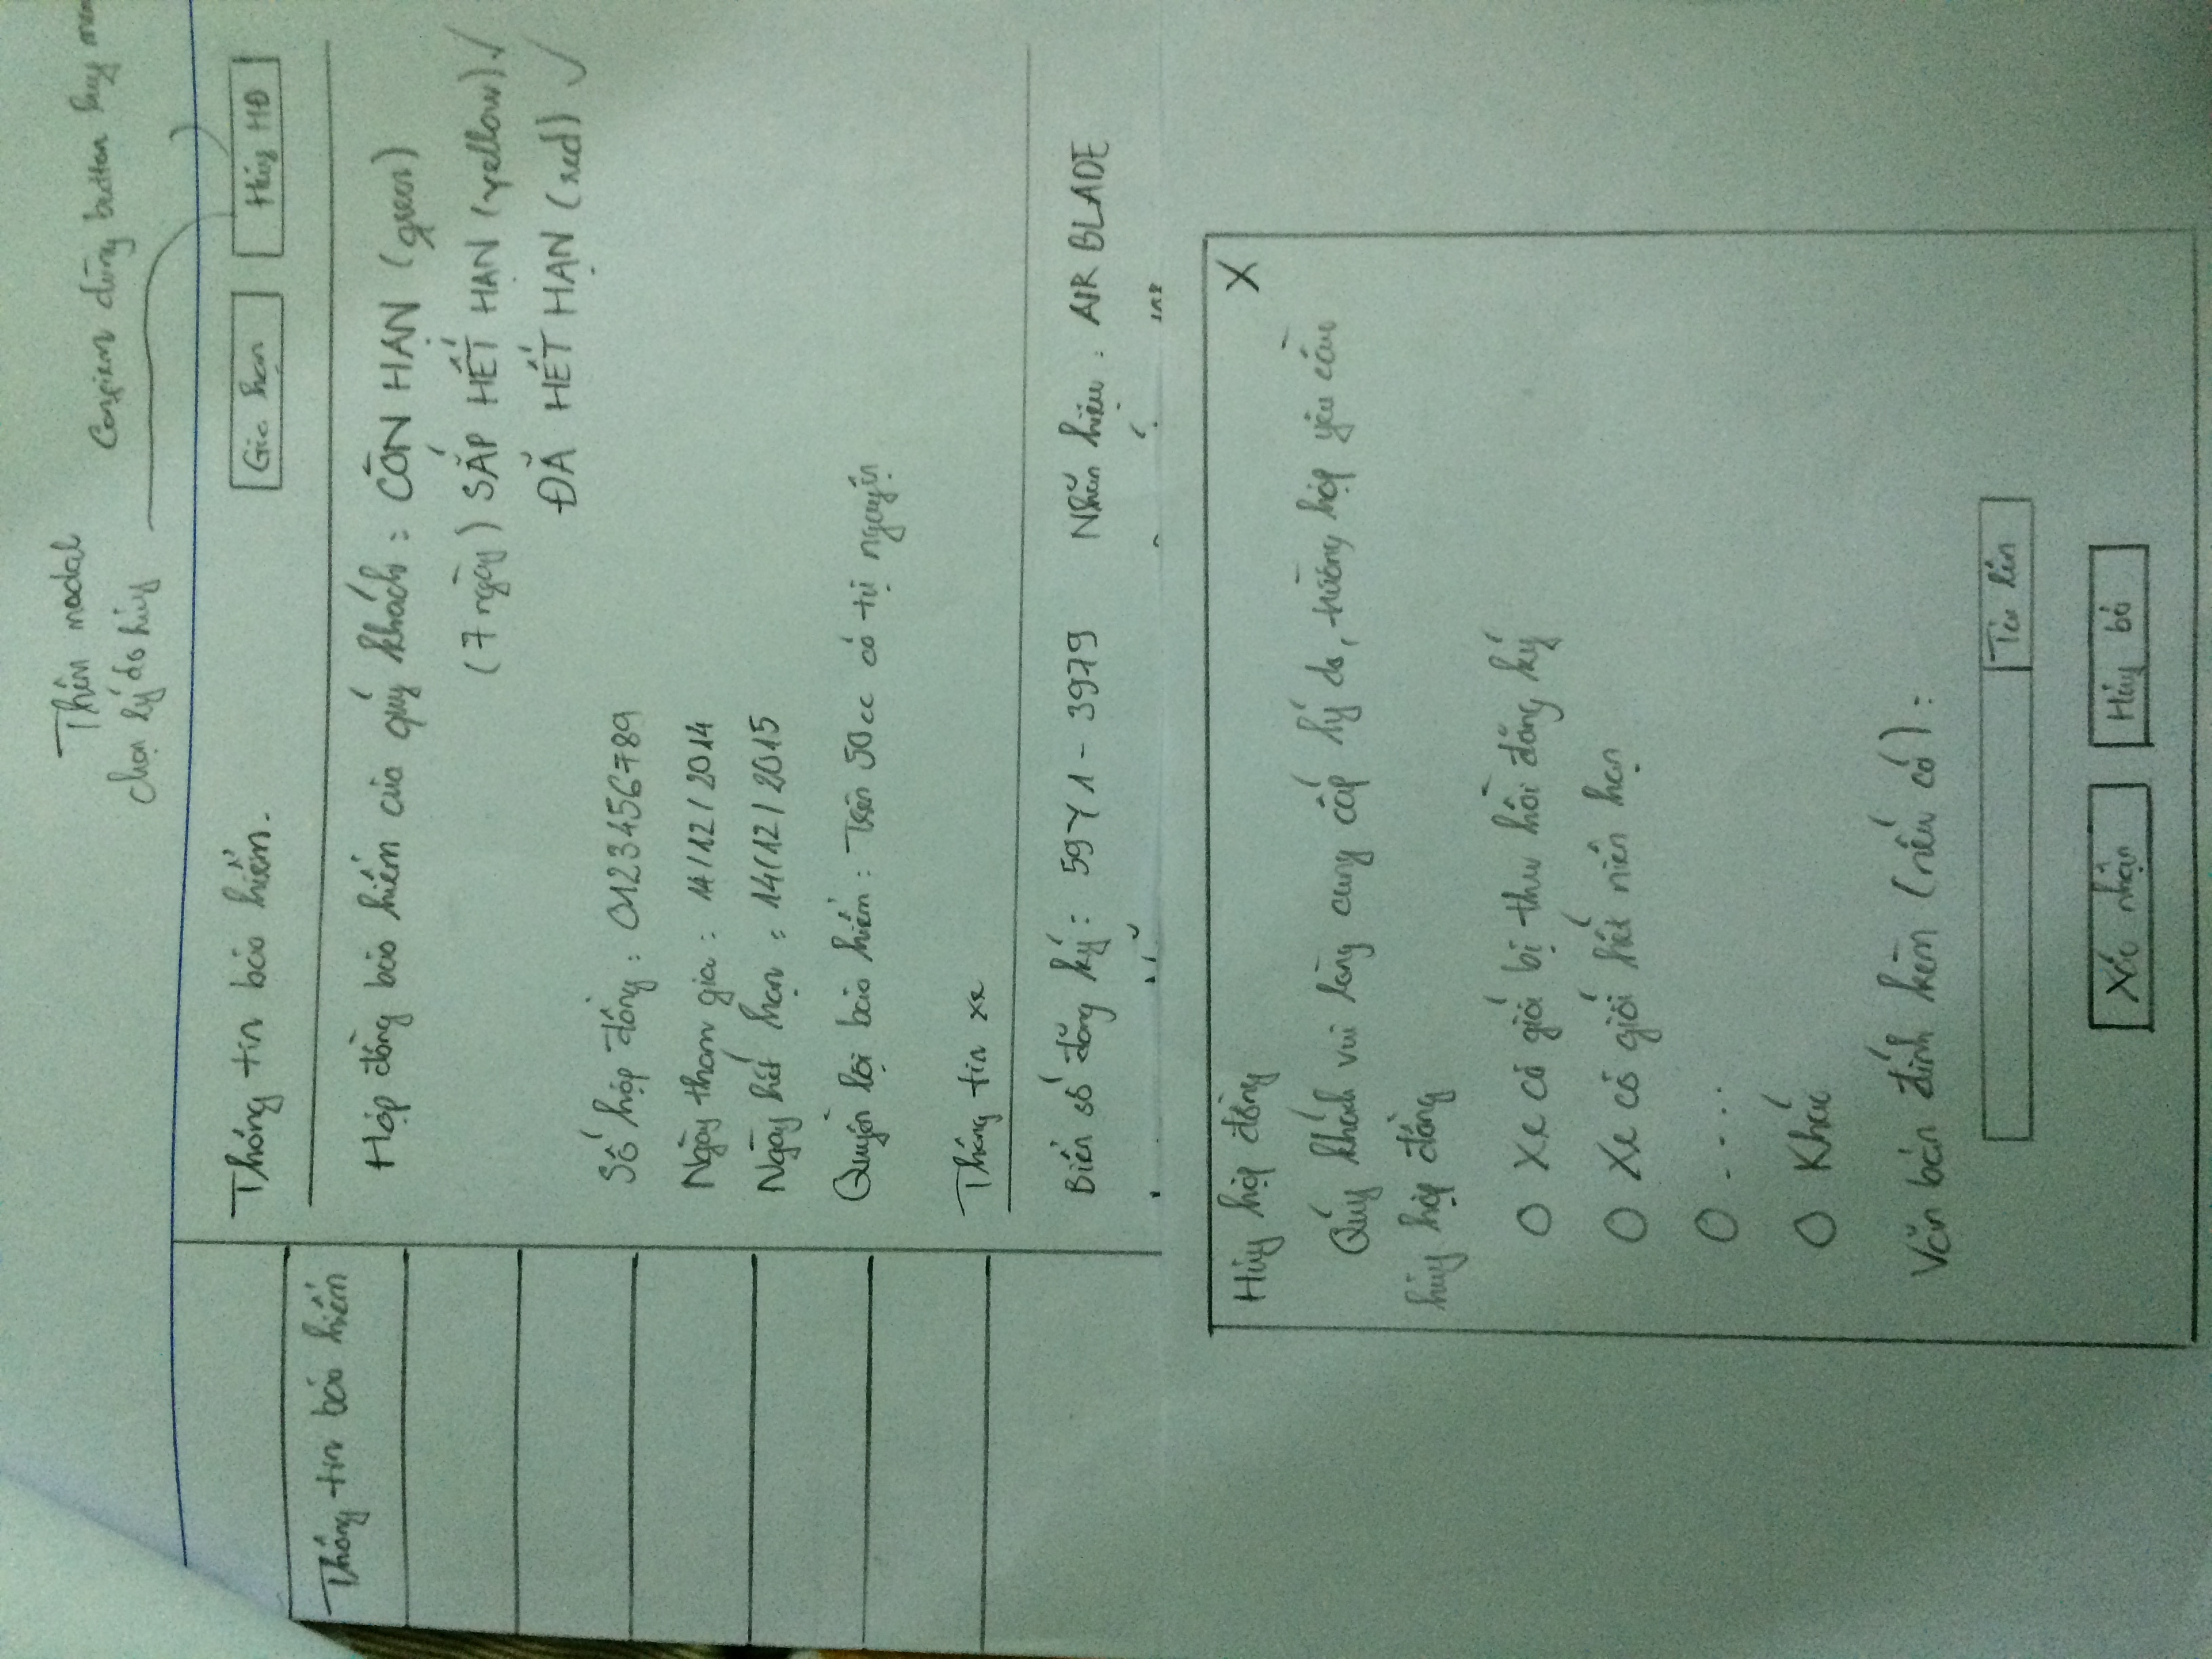 Thêm modal
chọn lý do hủy
Confirm dùng button hủy
Thông tin bảo hiểm.
Gia hạn
Hủy HĐ
Thông tin bảo hiểm
Hợp đồng bảo hiểm của quý khách : CÒN HẠN (green)
(7 ngày) SẮP HẾT HẠN (yellow) ✓
ĐÃ HẾT HẠN (red) ✓
Số hợp đồng : 0123456789
Ngày tham gia : 14/12/2014
Ngày hết hạn : 14/12/2015
Quyền lợi bảo hiểm : Trên 50cc có tự nguyện
Thông tin xe
Biển số đăng ký : 59Y1 - 3979 Nhãn hiệu : AIR BLADE
Hủy hợp đồng X
Quý khách vui lòng cung cấp lý do, trường hợp yêu cầu
hủy hợp đồng
O Xe cơ giới bị thu hồi đăng ký
O Xe cơ giới hết niên hạn
O ....
O Khác
Văn bản đính kèm (nếu có) :
Tải lên
Xác nhận
Hủy bỏ